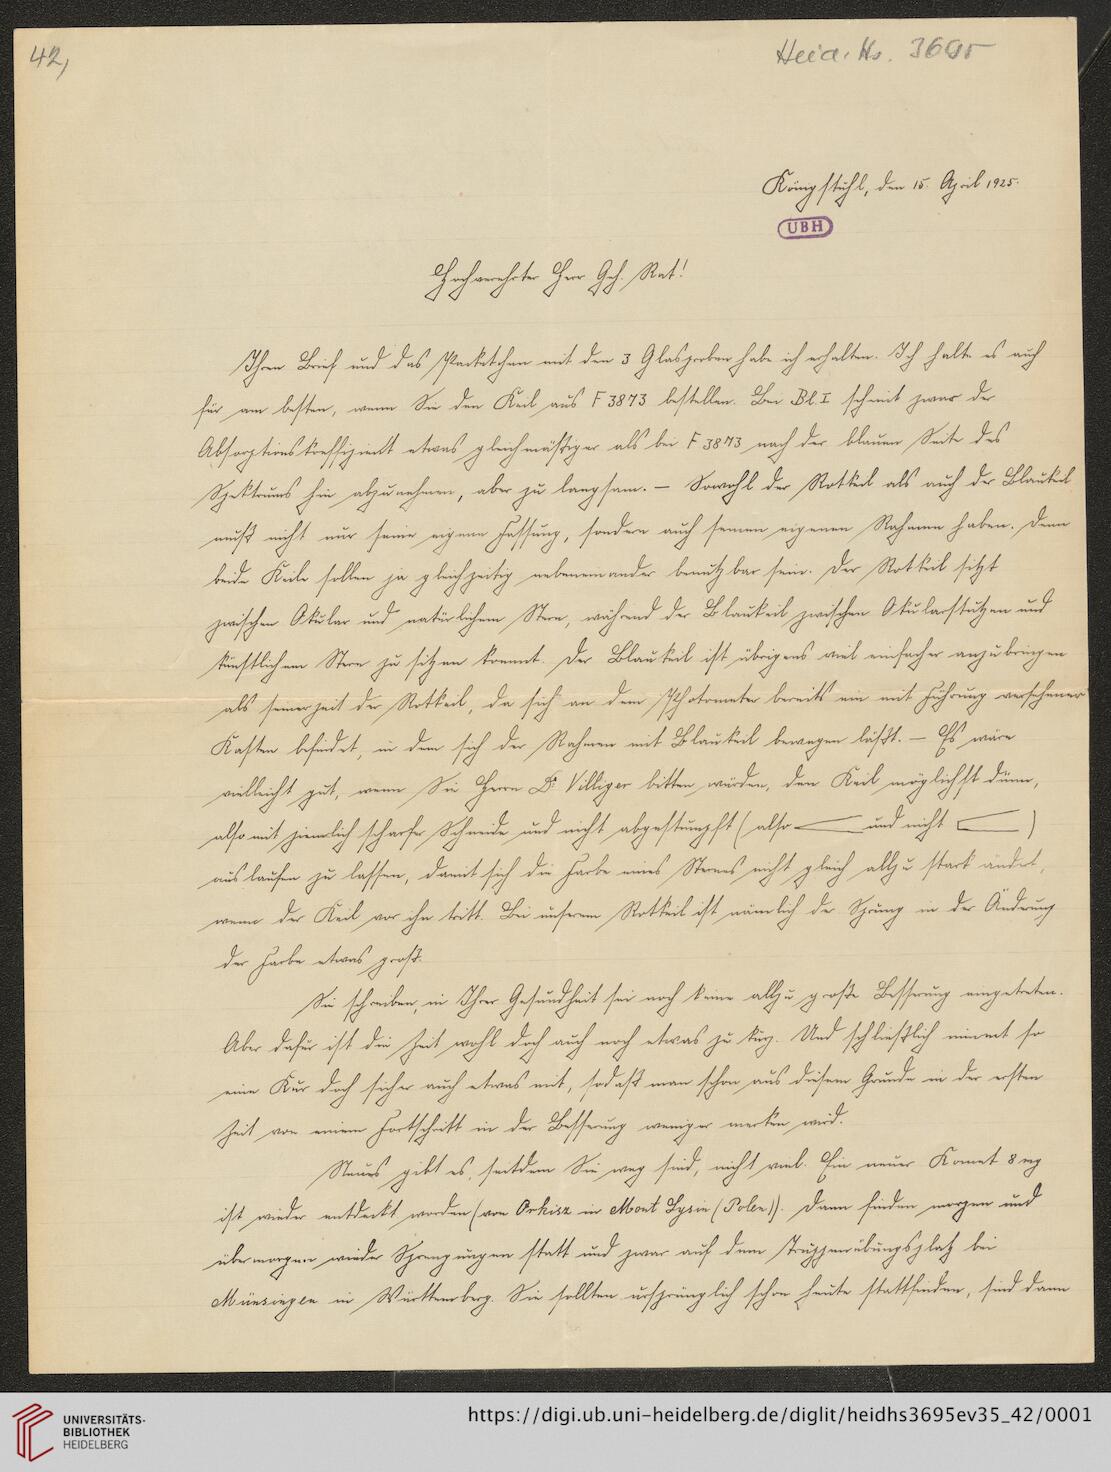 42,
Heid. Hs. 3695
Königstuhl, den 15. April 1925.
UBH
Hochverehrter Herr Geh. Rat!
Ihren Brief und das Packetchen mit den 3 Glasproben habe ich erhalten. Ich halte es auch
für am besten, wenn Sie den Keil aus F 3873 bestellen. Bei Bl. I scheint zwar der
Absorptionskoeffizient etwas gleichmäßiger als bei F 3873 nach der blauen Seite des
Spektrums hin abzunehmen, aber zu langsam. — Sowohl der Rotkeil als auch der Blaukeil
muß nicht nur seine eigene Fassung, sondern auch seinen eigenen Rahmen haben. Denn
beide Keile sollen ja gleichzeitig nebeneinander benutzbar sein. Der Rotkeil sitzt
zwischen Okular und natürlichem Stern, während der Blaukeil zwischen Okularstutzen und
künstlichem Stern zu sitzen kommt. Der Blaukeil ist übrigens viel einfacher anzubringen
als seinerzeit der Rotkeil, da sich an dem Photometer bereits ein mit Führung versehener
Kasten befindet, in dem sich der Rahmen mit Blaukeil bewegen läßt. — Es wäre
vielleicht gut, wenn Sie Herrn Dr. Villiger bitten würden, den Keil möglichst dünn,
also mit ziemlich scharfer Schneide und nicht abgestumpft (also und nicht )
auslaufen zu lassen, damit sich die Farbe eines Sternes nicht gleich allzu stark ändert,
wenn der Keil vor ihn tritt. Bei unserem Rotkeil ist nämlich der Sprung in der Änderung
der Farbe etwas groß.
Sie schreiben, in Ihrer Gesundheit sei noch keine allzu große Besserung eingetreten.
Aber dafür ist die Zeit wohl doch auch noch etwas zu kurz. Und schließlich nimmt so
eine Kur doch sicher auch etwas mit, sodaß man schon aus diesem Grunde in der ersten
Zeit von einem Fortschritt in der Besserung weniger merken wird.
Neues gibt es, seitdem Sie weg sind, nicht viel. Ein neuer Komet 8
ist wieder entdeckt worden (von Orkisz in Mont Lysin (Polen)). Dann finden morgen und
übermorgen wieder Sprengungen statt und zwar auf dem Truppenübungsplatz bei
Münsingen in Württemberg. Sie sollten ursprünglich schon heute stattfinden, sind dann
UNIVERSITÄTS-
BIBLIOTHEK
HEIDELBERG
https://digi.ub.uni-heidelberg.de/diglit/heidhs3695ev35_42/0001